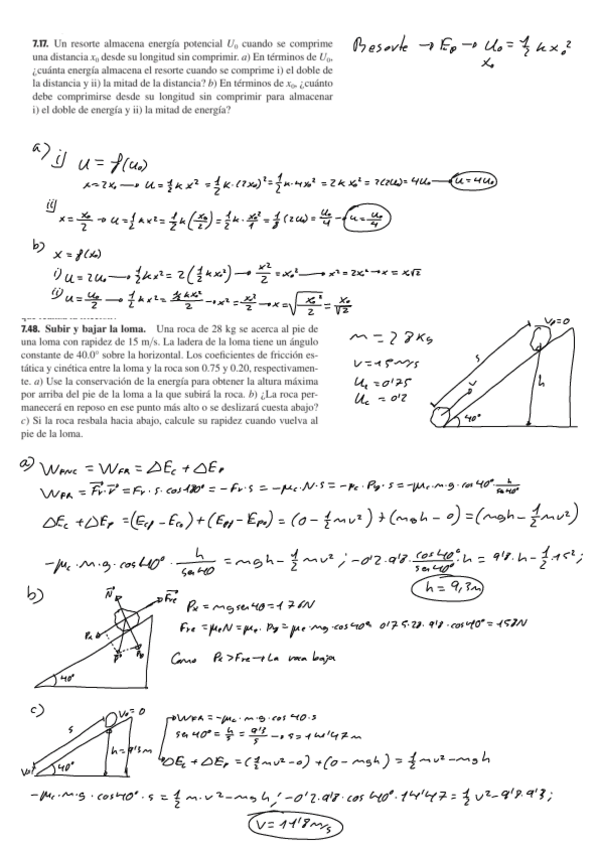 7.17. Un resorte almacena energía potencial U₀ cuando se comprime
una distancia x₀ desde su longitud sin comprimir. a) En términos de U₀,
¿cuánta energía almacena el resorte cuando se comprime i) el doble de
la distancia y ii) la mitad de la distancia? b) En términos de x₀, ¿cuánto
debe comprimirse desde su longitud sin comprimir para almacenar
i) el doble de energía y ii) la mitad de energía?
Resorte → Ep → U₀ = ½ k x₀²
x₀
a) i) U = f(U₀)
x = 2x₀ → U = ½ k x² = ½ k · (2x₀)² = ½ k · 4x₀² = 2k x₀² = 2(2U₀) = 4U₀ → U = 4U₀
ii)
x = x₀/2 → U = ½ k x² = ½ k (x₀/2)² = ½ k · x₀²/4 = ¼ (2U₀) = U₀/4 → U = U₀/4
b) x = f(x₀)
i) U = 2U₀ → ½ k x² = 2(½ k x₀²) → x²/2 = x₀² → x² = 2x₀² → x = x√2
ii) U = U₀/2 → ½ k x² = ½ k x₀²/2 → x² = x₀²/2 → x = √(x₀²/2) = x₀/√2
7.48. Subir y bajar la loma. Una roca de 28 kg se acerca al pie de
una loma con rapidez de 15 m/s. La ladera de la loma tiene un ángulo
constante de 40.0° sobre la horizontal. Los coeficientes de fricción es-
tática y cinética entre la loma y la roca son 0.75 y 0.20, respectivamen-
te. a) Use la conservación de la energía para obtener la altura máxima
por arriba del pie de la loma a la que subirá la roca. b) ¿La roca per-
manecerá en reposo en ese punto más alto o se deslizará cuesta abajo?
c) Si la roca resbala hacia abajo, calcule su rapidez cuando vuelva al
pie de la loma.
m = 28 Kg
V = 15 m/s
μe = 0'75
μc = 0'2
V₀ = 0
s
h
v
40°
a) WFNC = WFR = ΔEc + ΔEp
WFR = Fr · r = Fr · s · cos 180° = −Fr · s = −μc · N · s = −μc · Py · s = −μc · m · g · cos 40° · h/sen 40°
ΔEc + ΔEp = (Ecf − Eco) + (Epf − Epo) = (0 − ½mv²) + (mgh − 0) = (mgh − ½mv²)
−μc · m · g · cos 40° · h/sen 40 = mgh − ½ mv² ; −0'2 · 9'8 · cos 40°/sen 40° · h = 9'8 · h − ½ · 15² ;
h = 9,3m
b)
N
Fre
Px
Py
P
40°
Px = mg sen 40 = 176N
Fre = μe N = μe · Py = μe · mg · cos 40° = 0'75 · 28 · 9'8 · cos 40° = 158N
Como Px > Fre → La roca baja
c)
V₀ = 0
s
h = 9'3m
40°
WFR = −μc · m · g · cos 40 · s
sen 40° = h/s = 9'3/s → s = 14'47 m
ΔEc + ΔEp = (½mv² − 0) + (0 − mgh) = ½ mv² − mgh
−μc · m · g · cos 40° · s = ½ m · v² − mgh ; −0'2 · 9'8 · cos 40° · 14'47 = ½ v² − 9'8 · 9'3 ;
V = 11'8 m/s